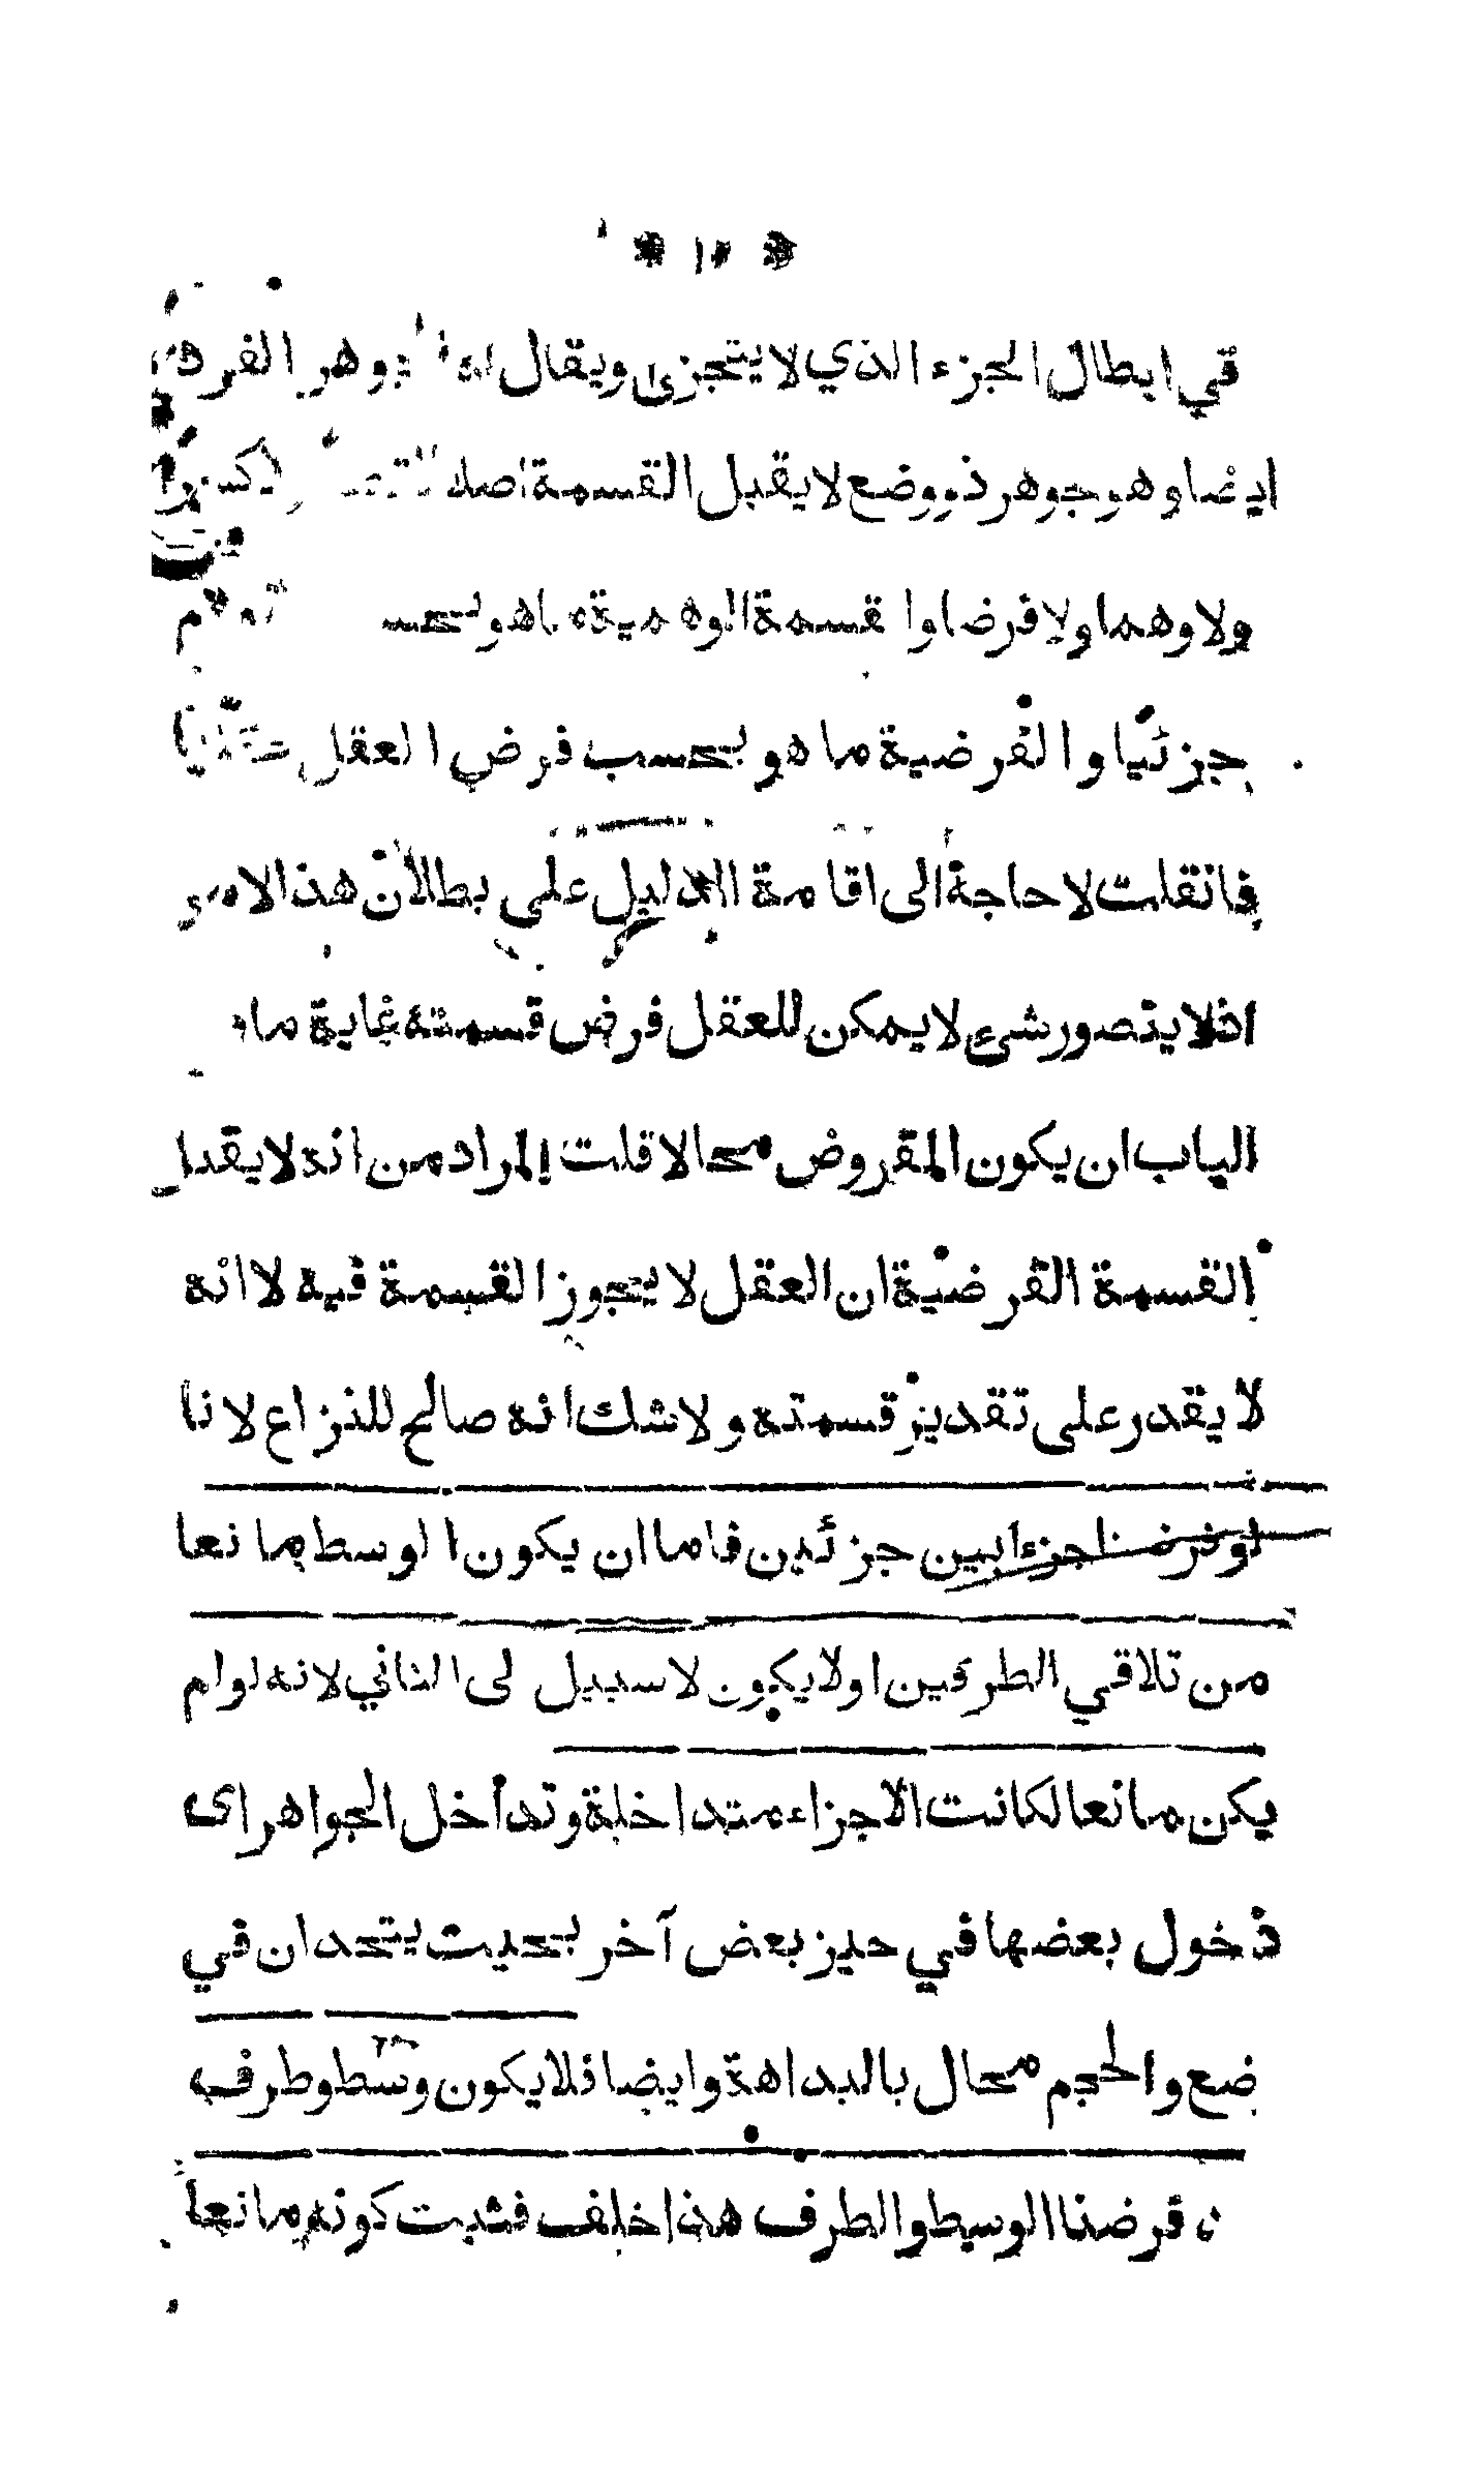 * ١٠ *
في ابطال الجزء الذي لا يتجزى ويقال له الجوهر الفرد
ايضا وهو جوهر ذو وضع لا يقبل القسمة اصلا لا كسرا
ولا وهما ولا فرضا والقسمة الوهمية ما هو بحسب التوهم
جزئيا والفرضية ما هو بحسب فرض العقل كليا
فان قلت لا حاجة الى اقامة الدليل على بطلان هذا الامر
اذ لا يتصور شيء لا يمكن للعقل فرض قسمته غاية ما
الباب ان يكون المفروض محالا قلت المراد من انه لا يقبل
القسمة الفرضية ان العقل لا يتجوز القسمة فيه لا انه
لا يقدر على تقدير قسمته ولا شك انه صالح للنزاع لانا
لو فرضنا جزءا بين جزئين فاما ان يكون الوسط مانعا
من تلاقي الطرفين او لا يكون لا سبيل لى الثاني لانه لو لم
يكن مانعا لكانت الاجزاء متداخلة وتداخل الجواهر اى
دخول بعضها في حيز بعض آخر بحيث يتحدان في
ضع والحجم محال بالبداهة وايضا فلا يكون وسط وطرف
فرضنا الوسط والطرف هذا خلف فثبت كونه مانعا